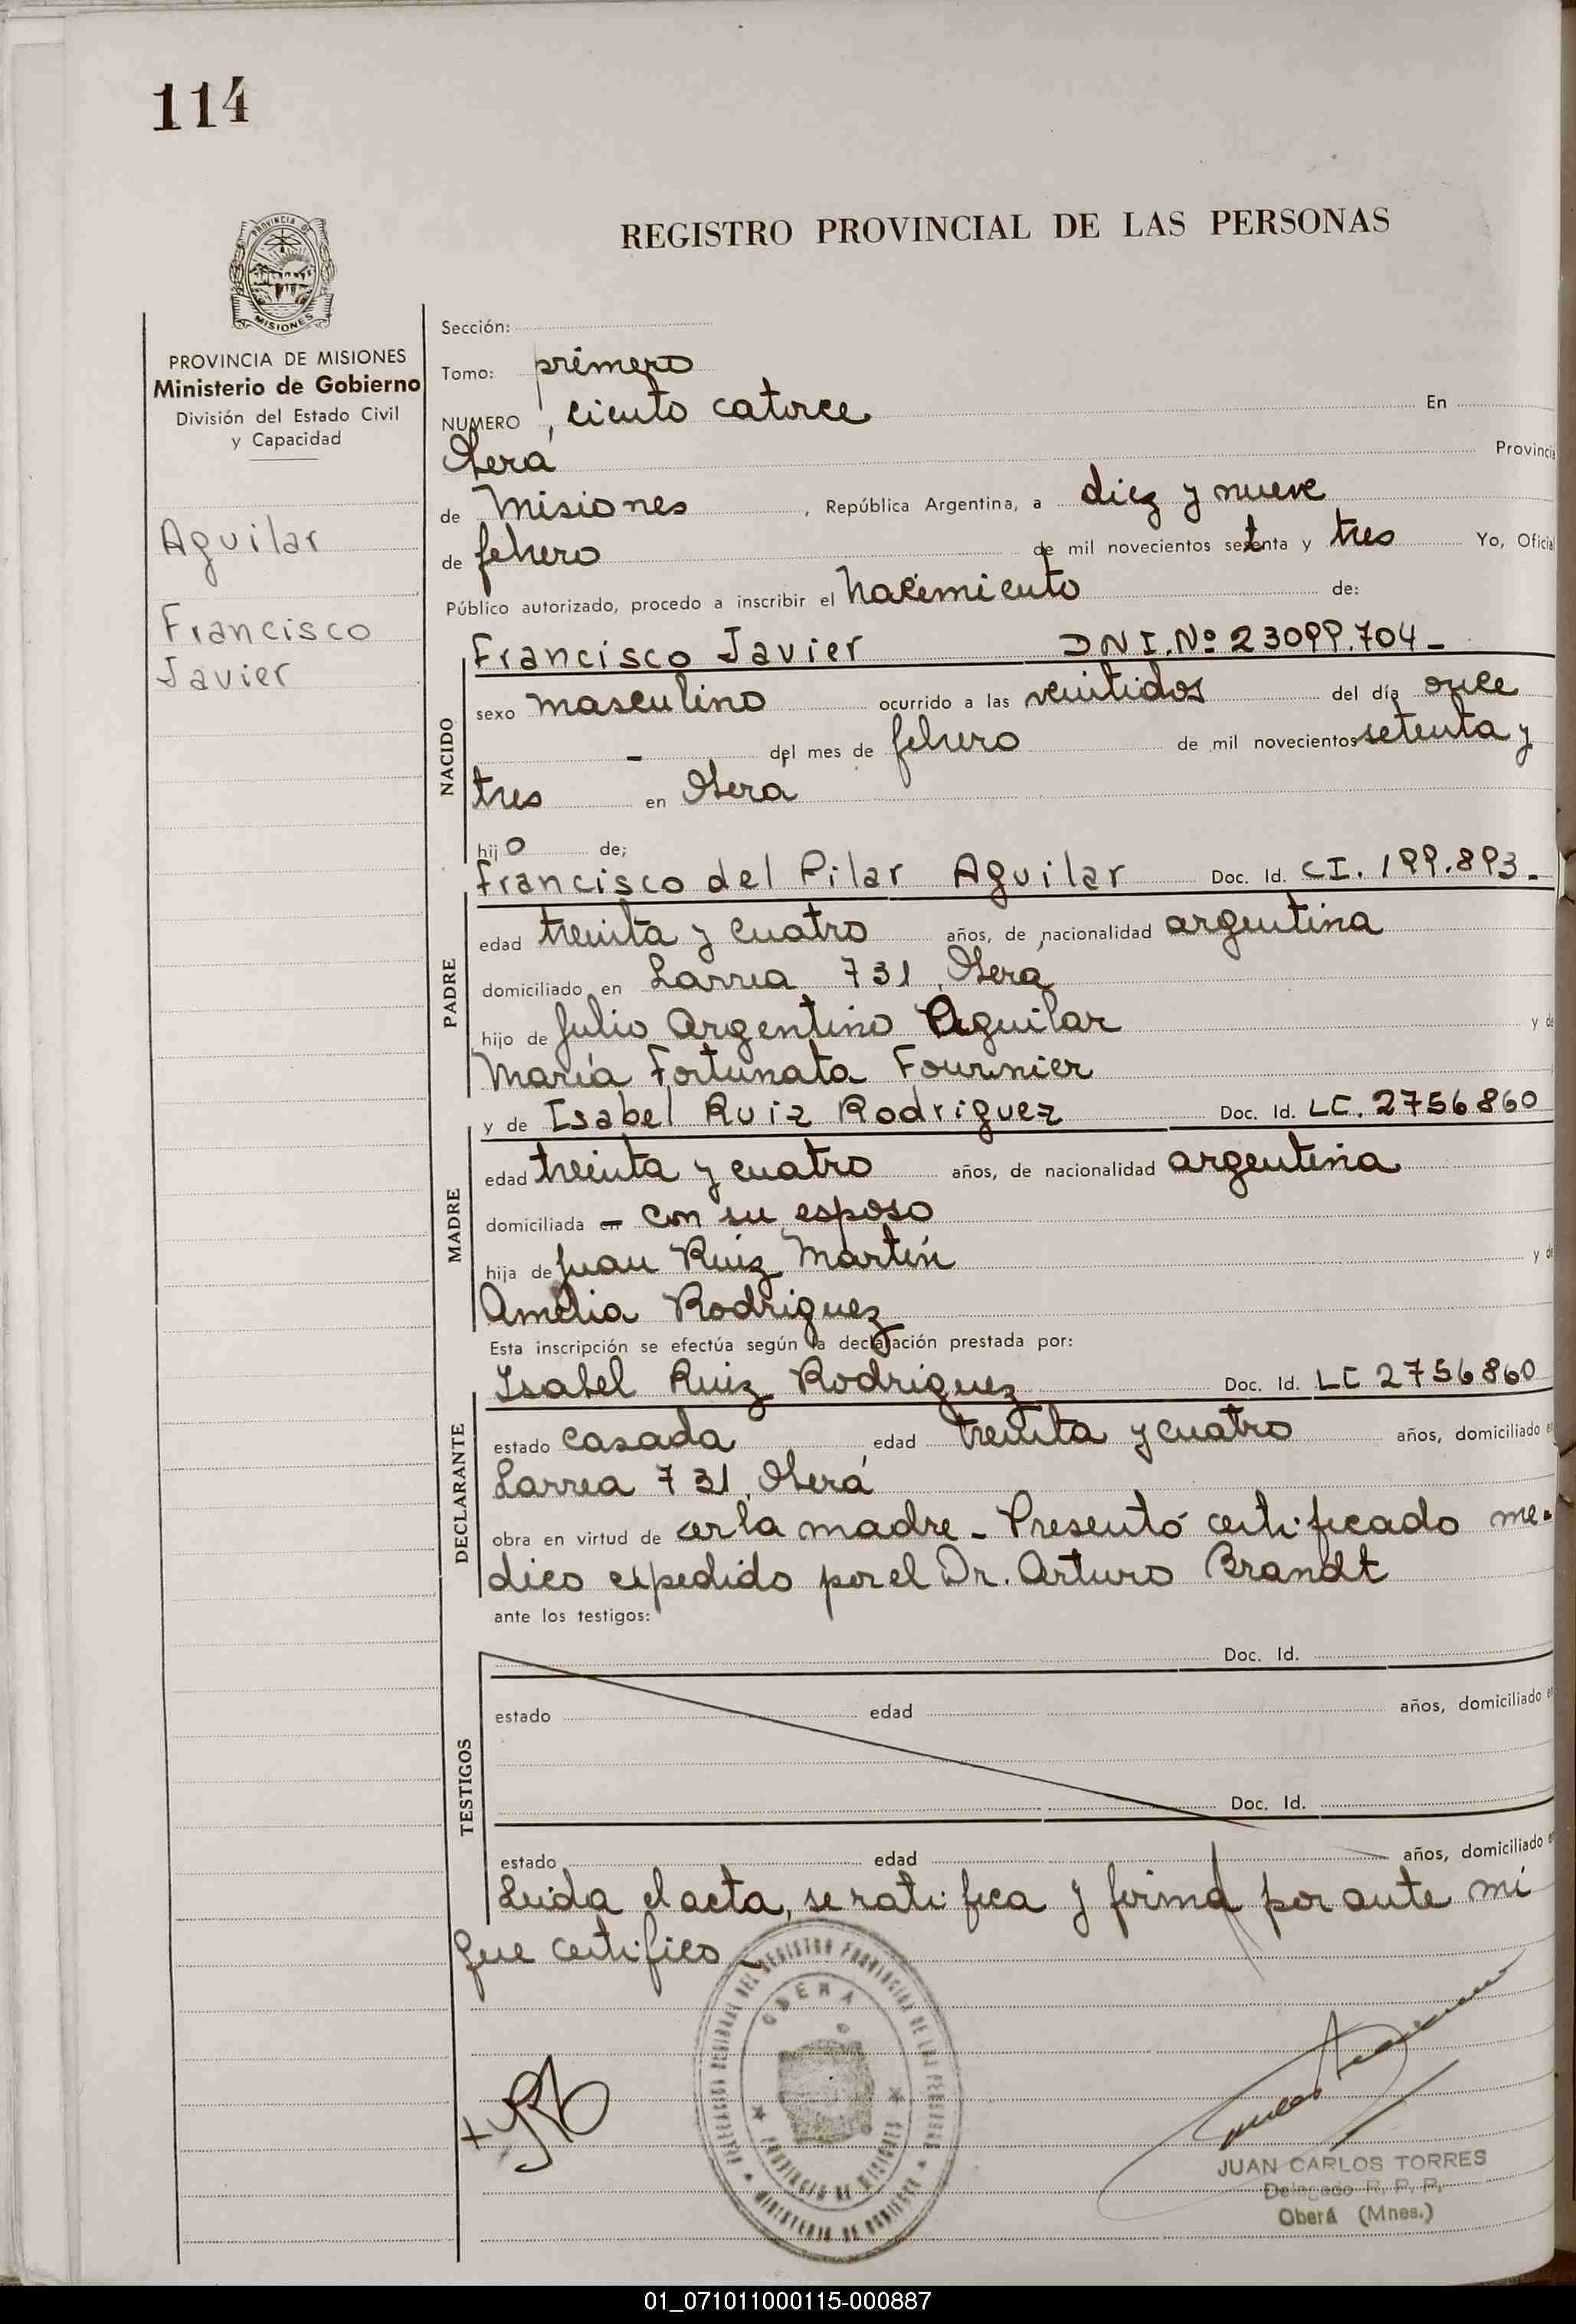 114
REGISTRO PROVINCIAL DE LAS PERSONAS
PROVINCIA DE
MISIONES
PROVINCIA DE MISIONES
Ministerio de Gobierno
División del Estado Civil
y Capacidad
Aguilar
Francisco
Javier
Sección:
Tomo: primero
NUMERO, ciento catorce En
Oberá Provincia
de Misiones, República Argentina, a diez y nueve
de febrero de mil novecientos setenta y tres Yo, Oficial
Público autorizado, procedo a inscribir el nacimiento de:
NACIDO
Francisco Javier DNI.Nº 23099.704-
sexo masculino ocurrido a las veintidos del día once
- del mes de febrero de mil novecientos setenta y
tres en Oberá
hijo de;
PADRE
Francisco del Pilar Aguilar Doc. Id. CI. 199.893-
edad treinta y cuatro años, de nacionalidad argentina
domiciliado en Larrea 731, Oberá
hijo de Julio Argentino Aguilar y de
María Fortunata Fournier
MADRE
y de Isabel Ruiz Rodriguez Doc. Id. LC. 2756860
edad treinta y cuatro años, de nacionalidad argentina
domiciliada en - con su esposo
hija de Juan Ruiz Martín y de
Amelia Rodriguez
Esta inscripción se efectúa según la declaración prestada por:
DECLARANTE
Isabel Ruiz Rodriguez Doc. Id. LC 2756860
estado casada edad treinta y cuatro años, domiciliado en
Larrea 731, Oberá
obra en virtud de ser la madre - Presentó certificado me-
dico expedido por el Dr. Arturo Brandt
ante los testigos:
TESTIGOS
Doc. Id.
estado edad años, domiciliado en
Doc. Id.
estado edad años, domiciliado en
Leida el acta, se ratifica y firma por ante mi
que certifico -
DELEGACION REGIONAL DEL REGISTRO PROVINCIAL DE LAS PERSONAS
OBERA
PROVINCIA DE MISIONES
MINISTERIO DE GOBIERNO
JUAN CARLOS TORRES
Delegado R. P. P.
Oberá (Mnes.)
01_071011000115-000887